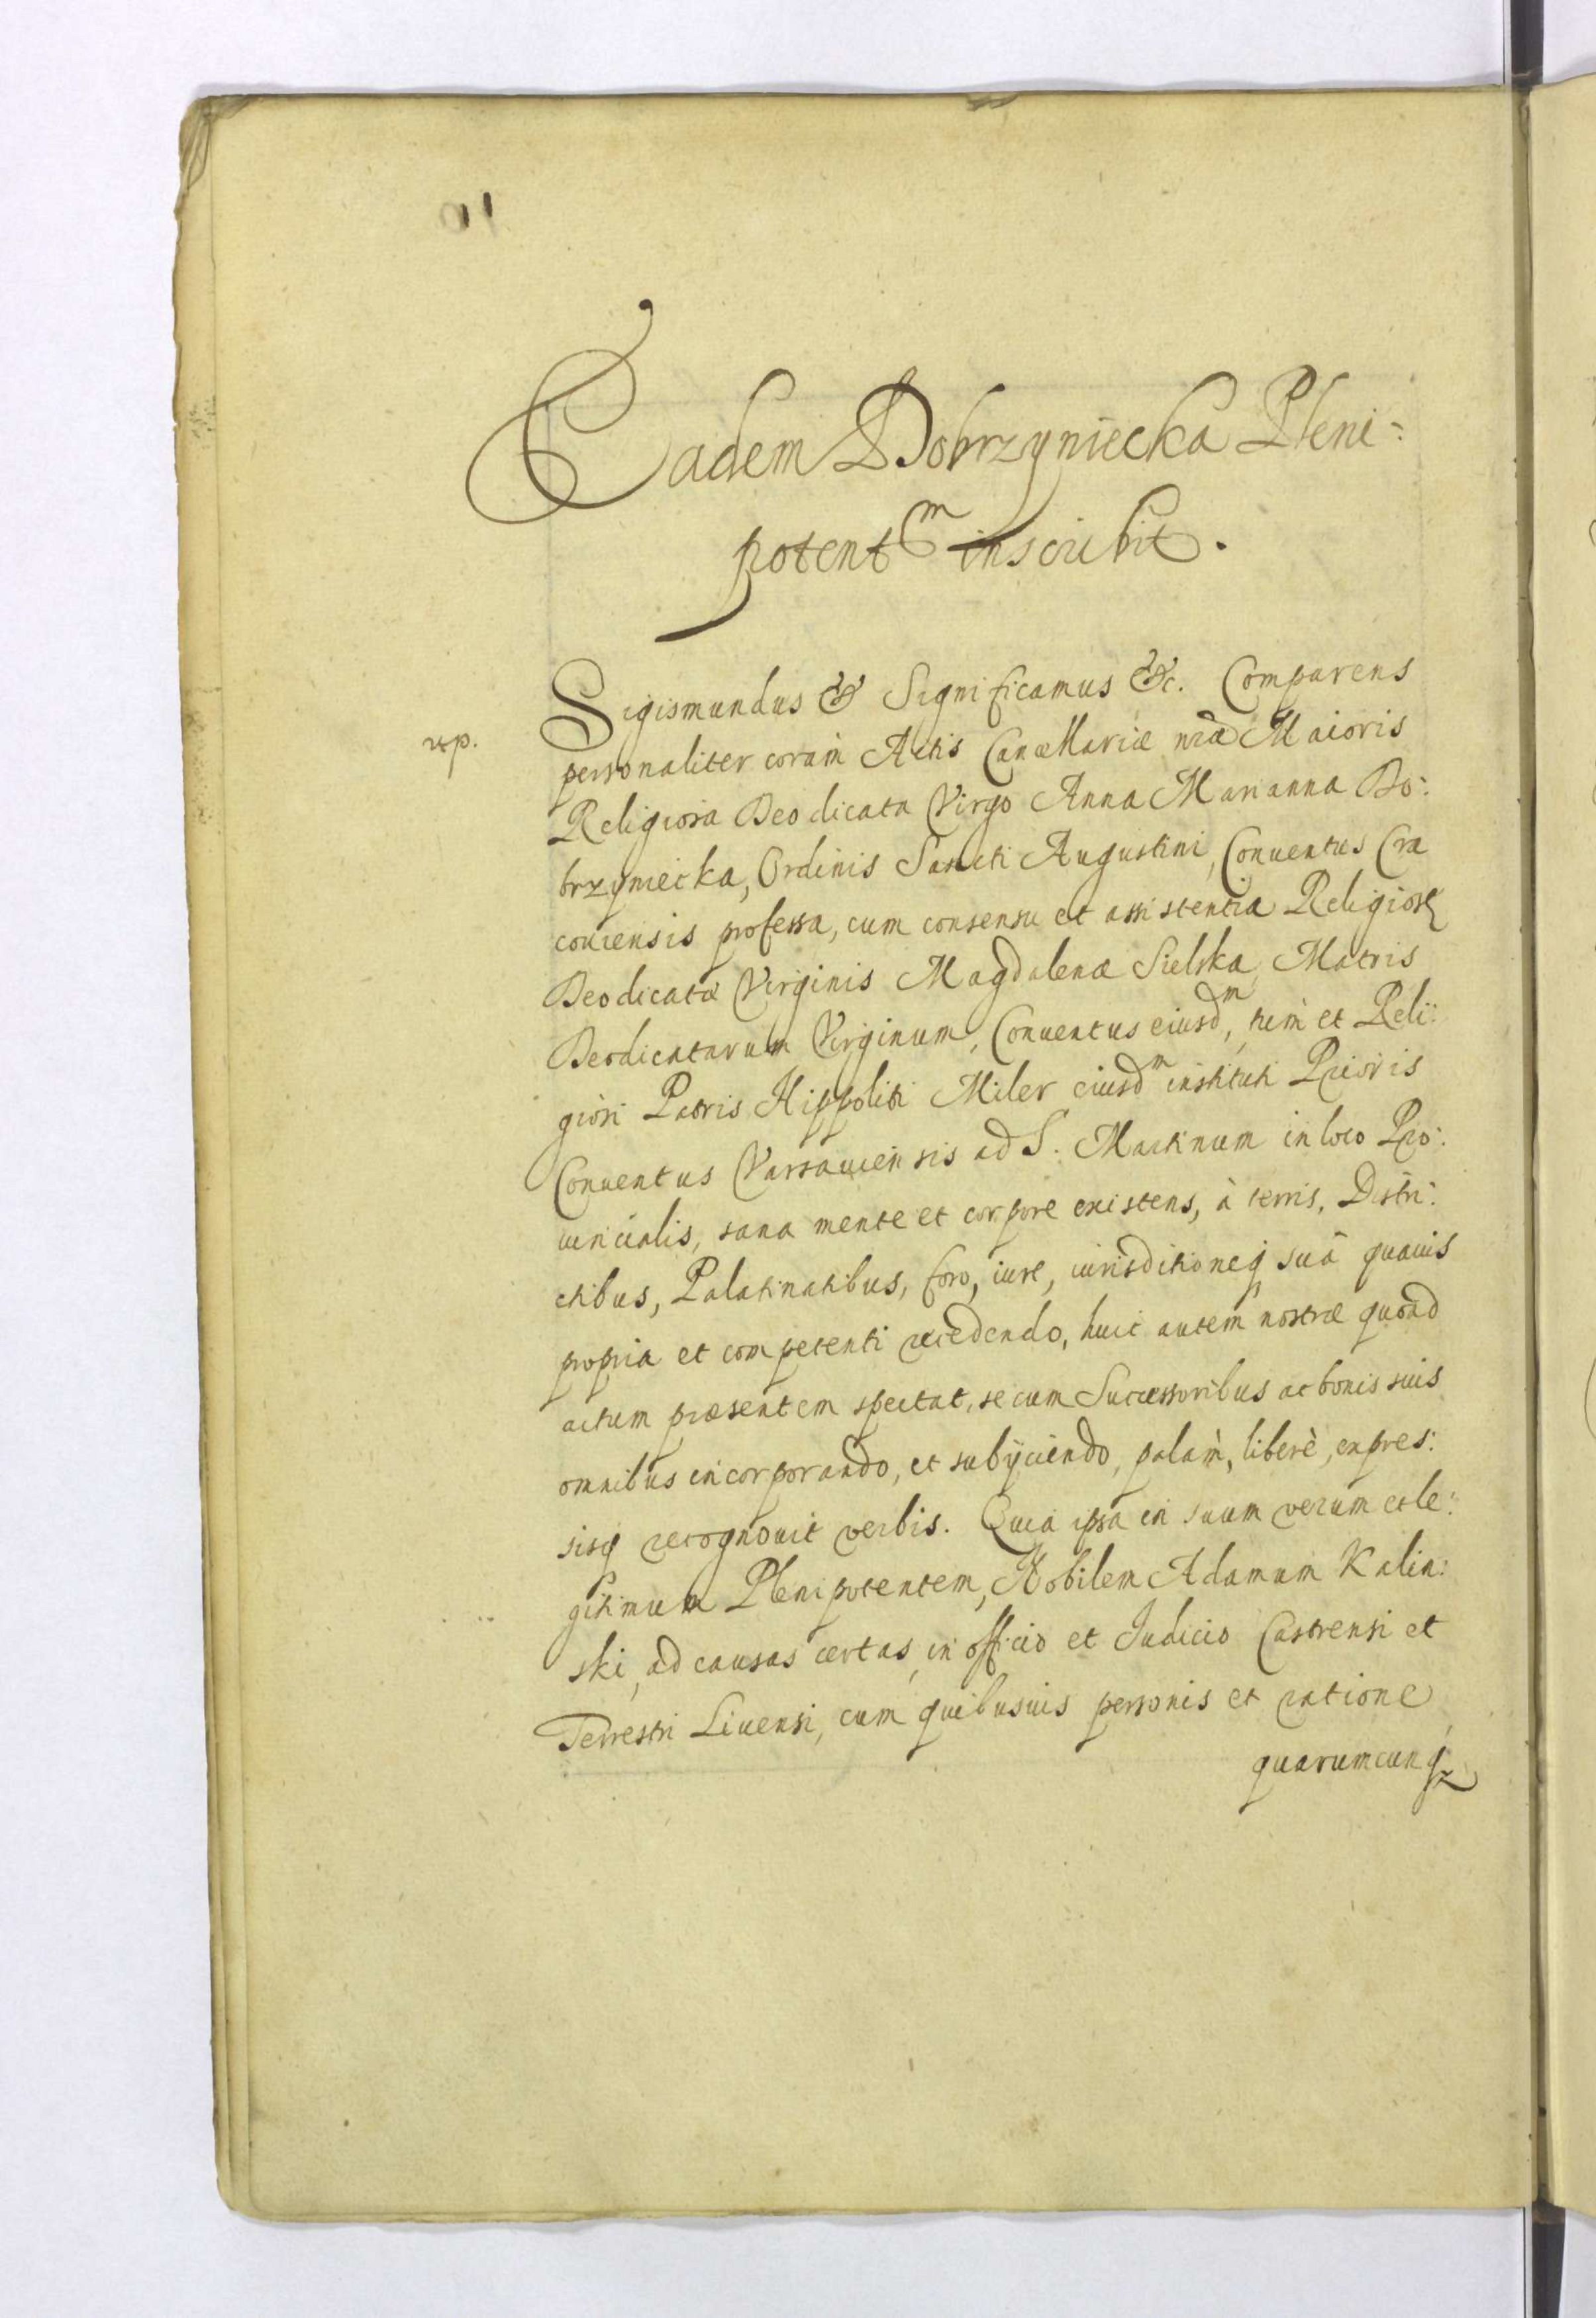 Eadem Dobrzyniecka Pleni:
potentem inscribit.
Sigismundus & Significamus &c. Comparens
rp.
personaliter coram Actis Cancellariæ nræ Maioris
Religiosa Deo dicata Virgo Anna Marianna Do:
brzyniecka, Ordinis Sancti Augustini, Conuentus Cra
couiensis professa, cum consensu et assistentia Religiosę
Deodicatæ Virginis Magdalenæ Sielska, Matris
Deodicatarum Virginum, Conuentus eiusdm, tum et Reli:
giosi Patris Hippoliti Miler eiusdm instituti Prioris
Conuentus Varsauiensis ad S. Martinum in loco Pro:
uincialis, sana mente et corpore existens, à terris, Distri:
ctibus, Palatinatibus, foro, iure, iurisditioneq suâ quauis
propria et competenti recedendo, huic autem nostræ quoad
actum præsentem spectat, se cum Successoribus ac bonis suis
omnibus incorporando, et subÿciendo, palàm, liberè, expres:
sisq recognouit verbis. Quia ipsa in suum verum et le:
gitimum Plenipotentem, Nobilem Adamum Kalin:
ski, ad causas certas, in officio et Iudicio Castrensi et
Terrestri Liuensi, cum quibusuis personis et ratione
quarumcunq